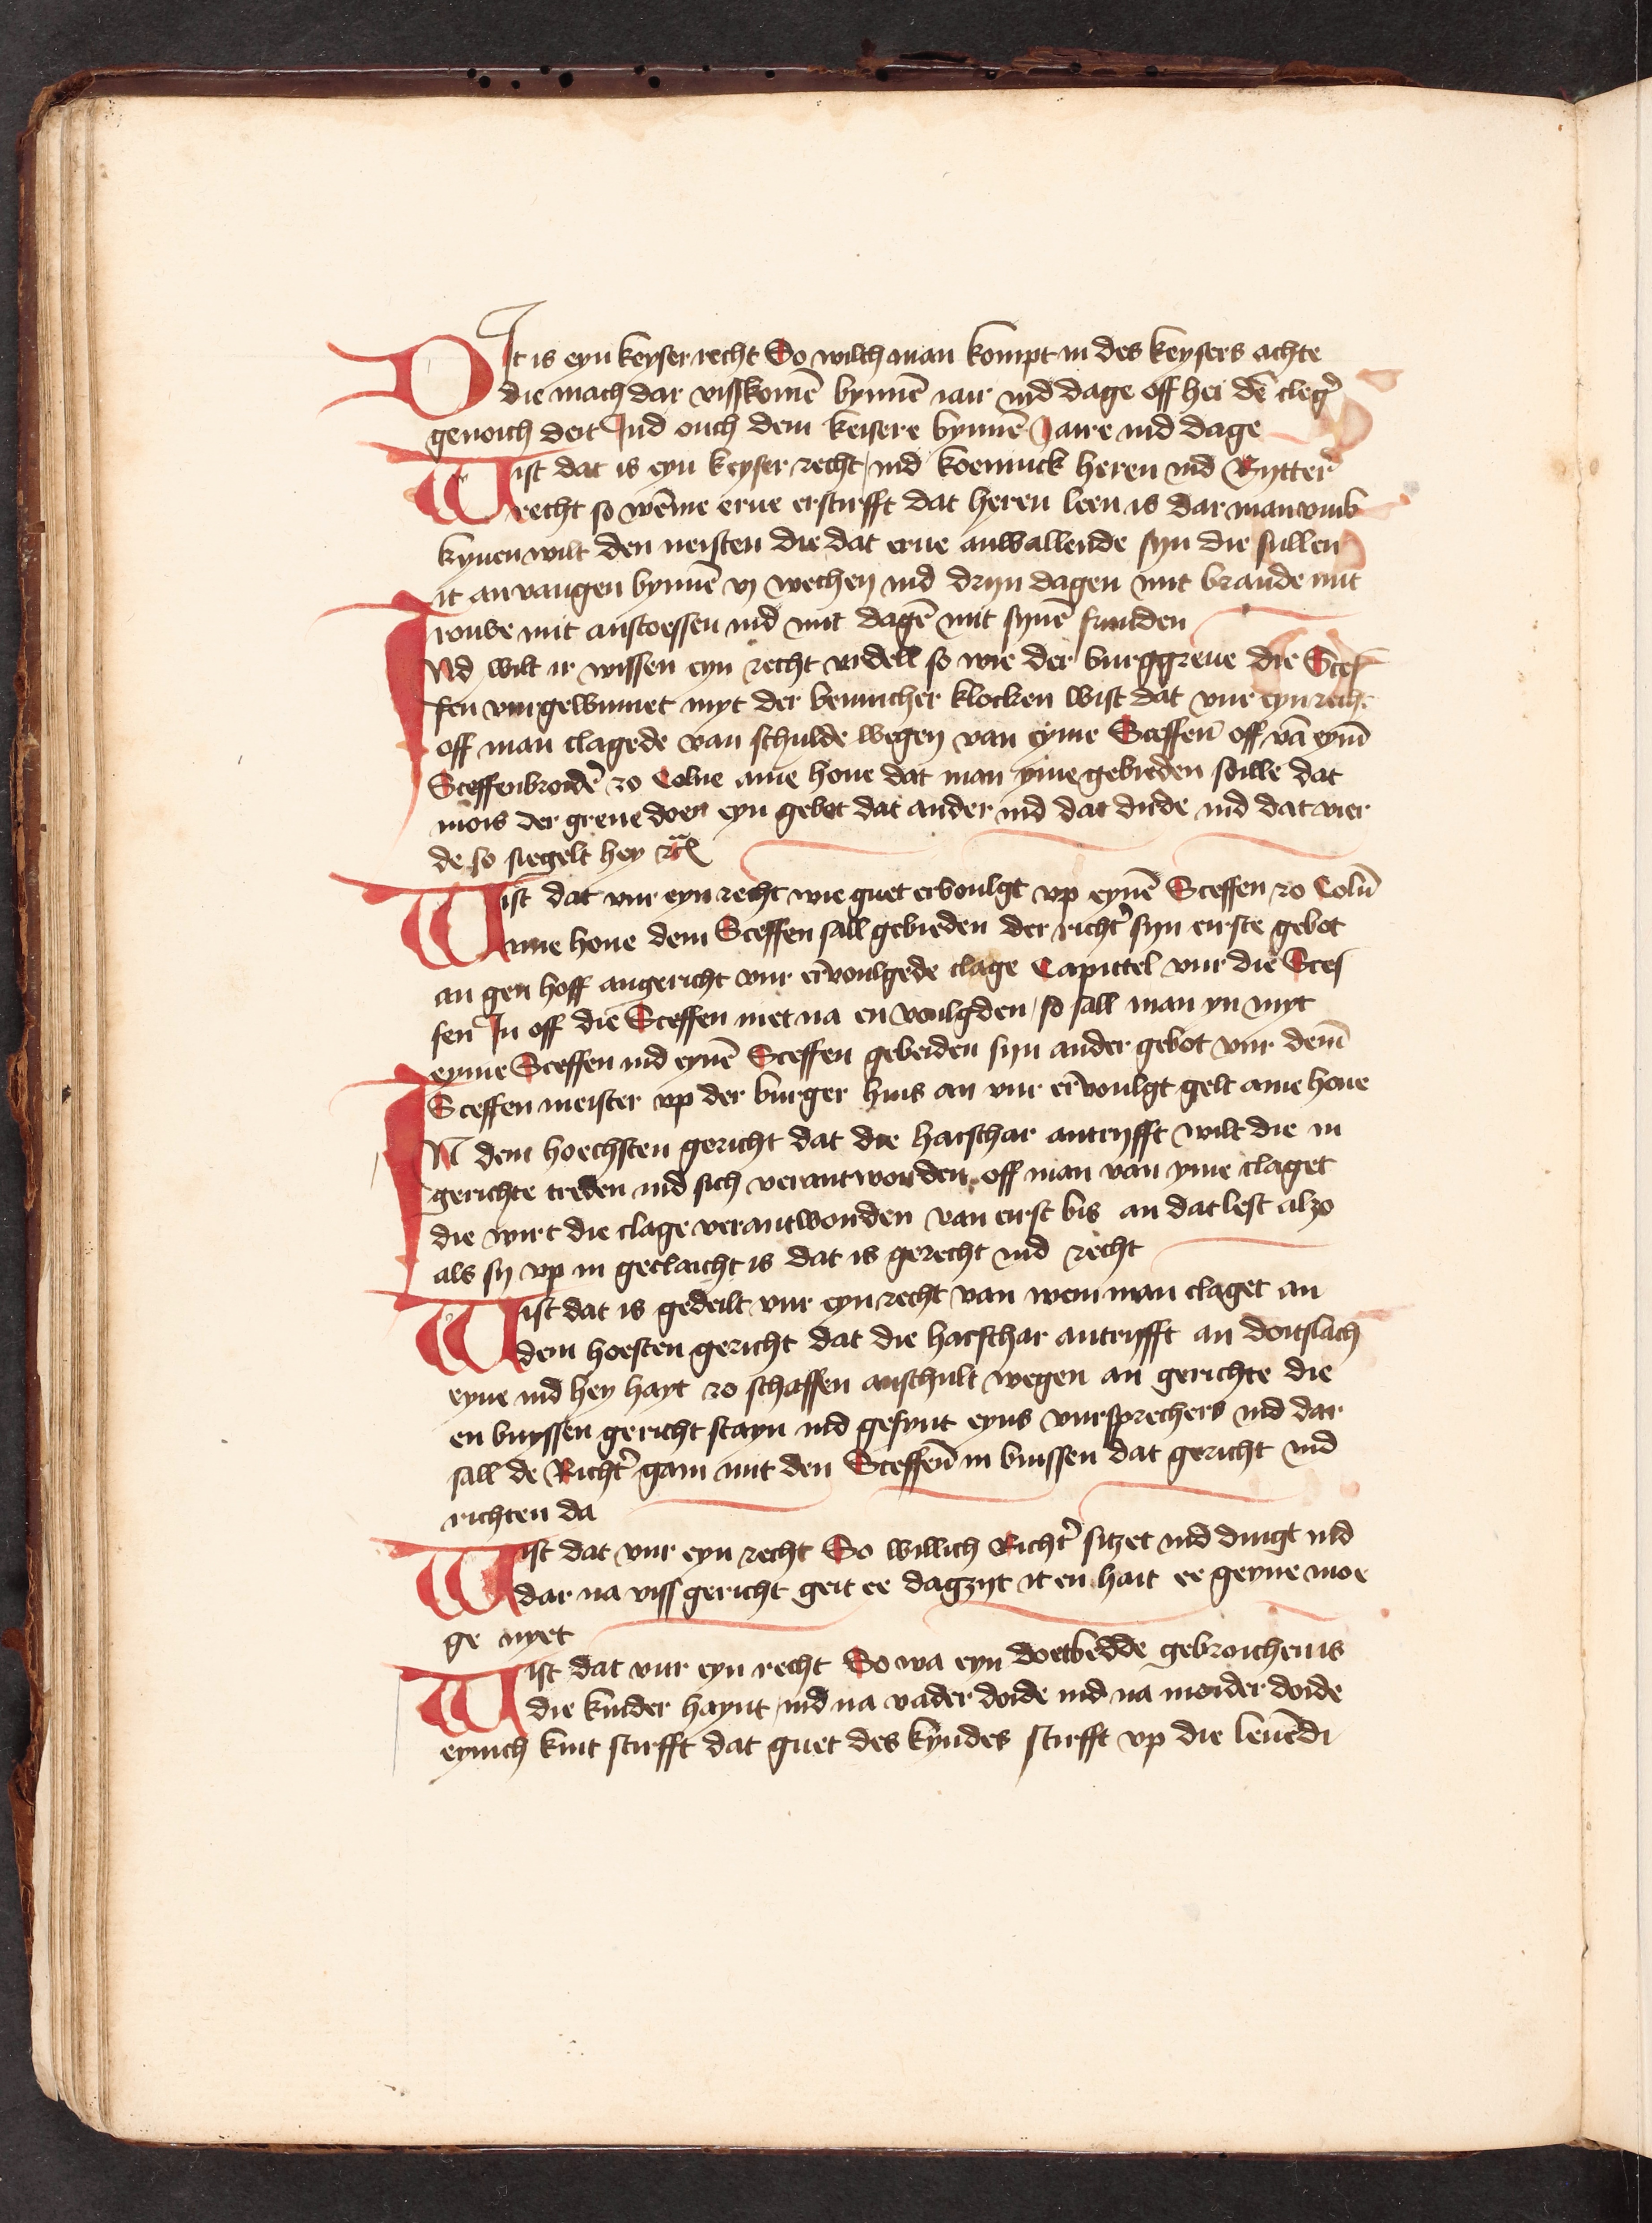 DIt is eyn keyser recht So wilch man kompt in des keysers achte
die mach dar vssskomē bynnē iair ind dage off hei dē cleg̉
genoich deit Ind ouch dem keisere bynnē Jaire ind dage
Wist dat is eyn keyser recht ind koeninck heren ind Rytter̉
recht so wēme erue ersturfft dat heren leen is dar man vmb
kyuen wilt den neisten die dat erue anwallende syn die sullen
it anvangen bynnē vj wechen ind dryn dagen mit brande mit
rouve mit anstoessen ind mit dagē mit synē frunden
INd wilt ir wissen eyn recht vrdell so wie der burggreue die Scef
fen vur gewinnet myt der bennicher klocken wist dat vur eyn recht
off man clagede van schulde wegen van eyme Sceffen off vā eym̄
Sceffenbroid̉ zo Colne ame houe dat man yme gebieden soille dat
mois der greue doen eyn gebot dat ander ind dat dirde ind dat vier
de so siegelt hey
Wist dat vur eyn recht wie guet ervoulgt vp eynē Sceffen zo Coln̄
ame houe dem Sceffen sall gebieden der richt̉ syn eirste gebot
an gen hoff angericht vur ervoulgede clage Capittel vur die Scef
fen In off die Sceffen niet na en voulgden so sall man yn myt
eyme Sceffen ind eynē Sceffen gebeiden syn ander gebot vur dem̄
Sceffen meister vp der burger huis an vur ervoulgt gelt ame houe
IN dem hoechsten gericht dat die harschar antryfft wilt die in
gerichte treden ind sich verantworden off man van yme claget
die wirt die clage verantworden van eirst bis an dat lest alzo
als sy vp in geclaicht is dat is gerecht ind recht
Wist dat is gedeilt vur eyn recht van wem man claget an
dem hoesten gericht dat die harschar antrifft an doitslach
eyne ind hey hayt zo schaffen anschult wegen an gerichte die
en buyssen gericht stayn ind gesynt eyns vursprechers ind dar
sall de Richt̉ gain mit den Sceffen̄ in buissen dat gericht ind
richten da
Wist dat vur eyn recht So willich Richt̉ sitzet ind dingt ind
dar na viss gericht geit ee dagzyt it en hait ee geyne moe
ge nyet
Wist dat vur eyn recht So wa eyn doetbedde gebroichen is
die kinder haynt ind na vader doide ind na moider doide
eynich kint stirfft dat guet des kyndes stirfft vp die leuēdi